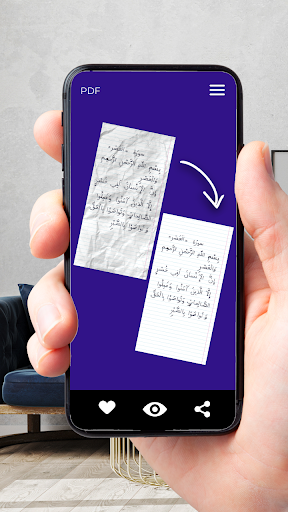 PDF
سورة العصر
بِسْمِ اللهِ الرَّحْمٰنِ الرَّحِيمِ
وَالْعَصْرِ
إِنَّ الْإِنْسَانَ لَفِي خُسْرٍ
إِلَّا الَّذِينَ آمَنُوا وَعَمِلُوا
الصَّالِحَاتِ وَتَوَاصَوْا بِالْحَقِّ
وَتَوَاصَوْا بِالصَّبْرِ
سورة العصر
بِسْمِ اللهِ الرَّحْمٰنِ الرَّحِيمِ
وَالْعَصْرِ
إِنَّ الْإِنْسَانَ لَفِي خُسْرٍ
إِلَّا الَّذِينَ آمَنُوا وَعَمِلُوا
الصَّالِحَاتِ وَتَوَاصَوْا بِالْحَقِّ
وَتَوَاصَوْا بِالصَّبْرِ